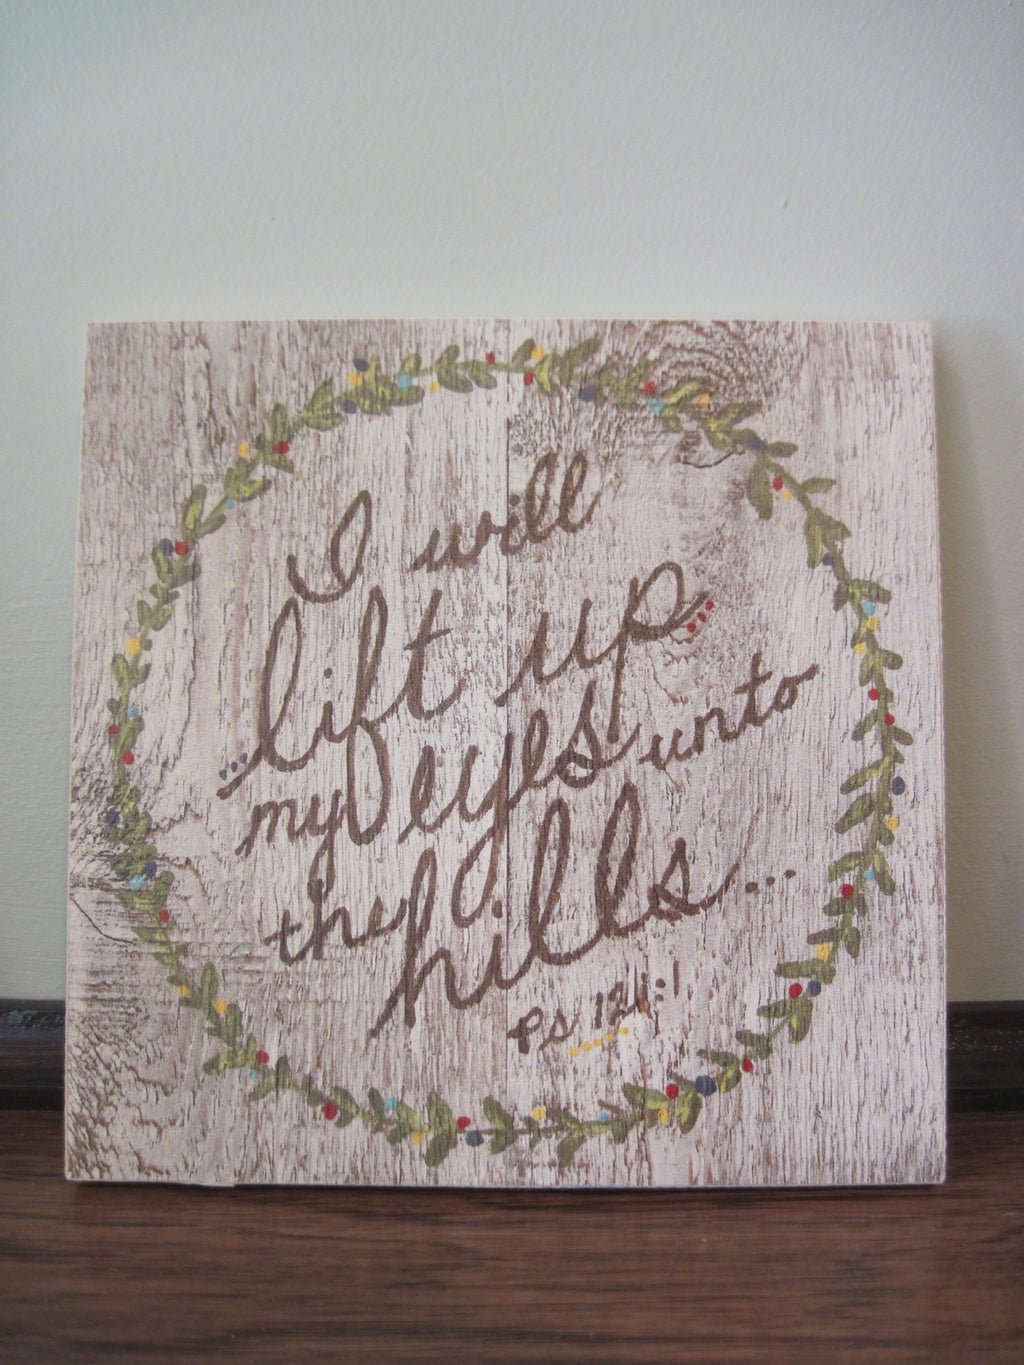 I will
lift up
my eyes unto
the hills...
Ps 121:1